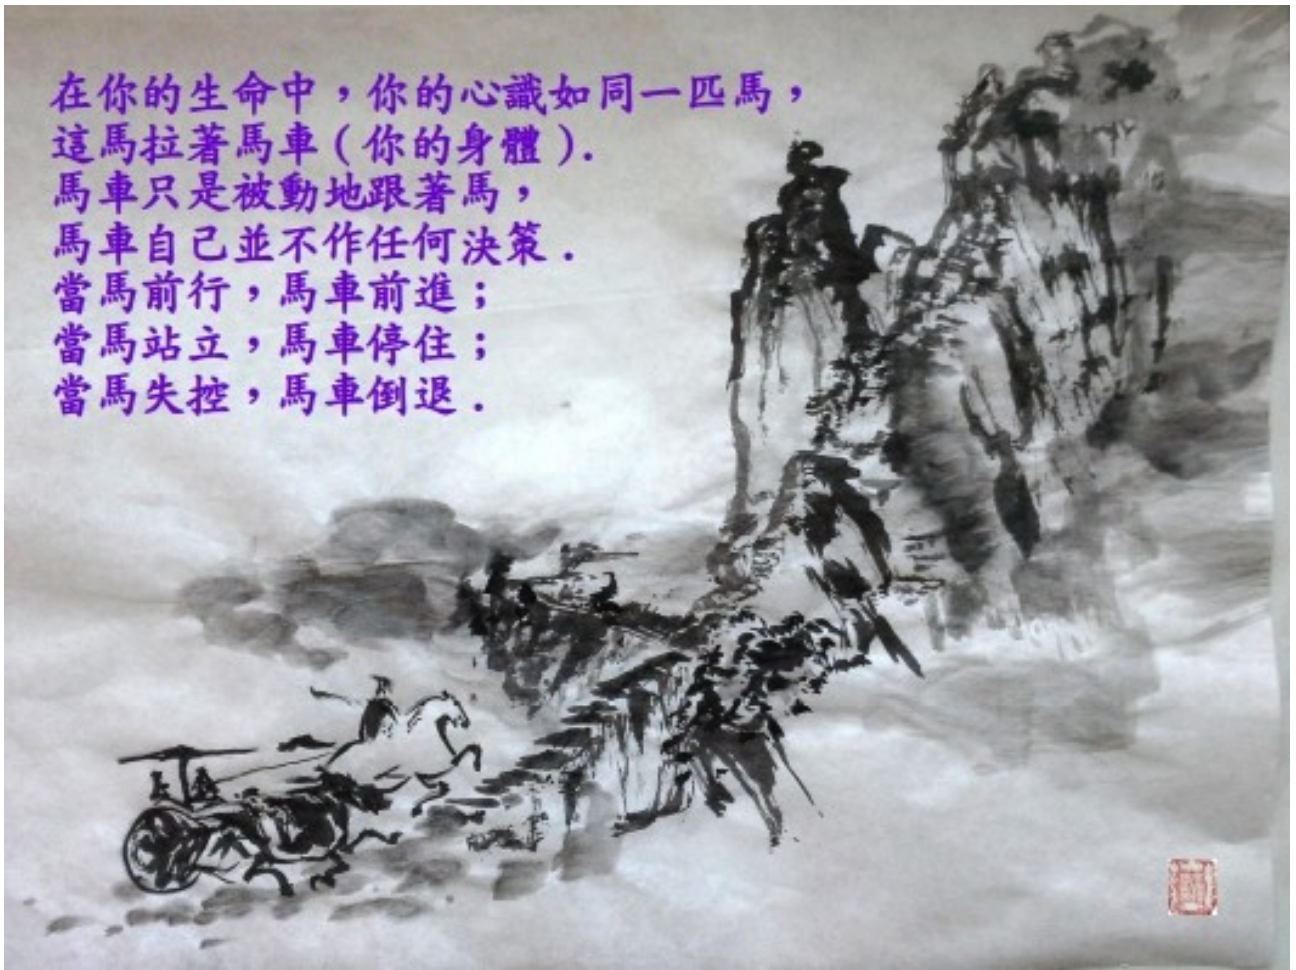 在你的生命中，你的心識如同一匹馬，
這馬拉著馬車（你的身體）.
馬車只是被動地跟著馬，
馬車自己並不作任何決策.
當馬前行，馬車前進；
當馬站立，馬車停住；
當馬失控，馬車倒退.